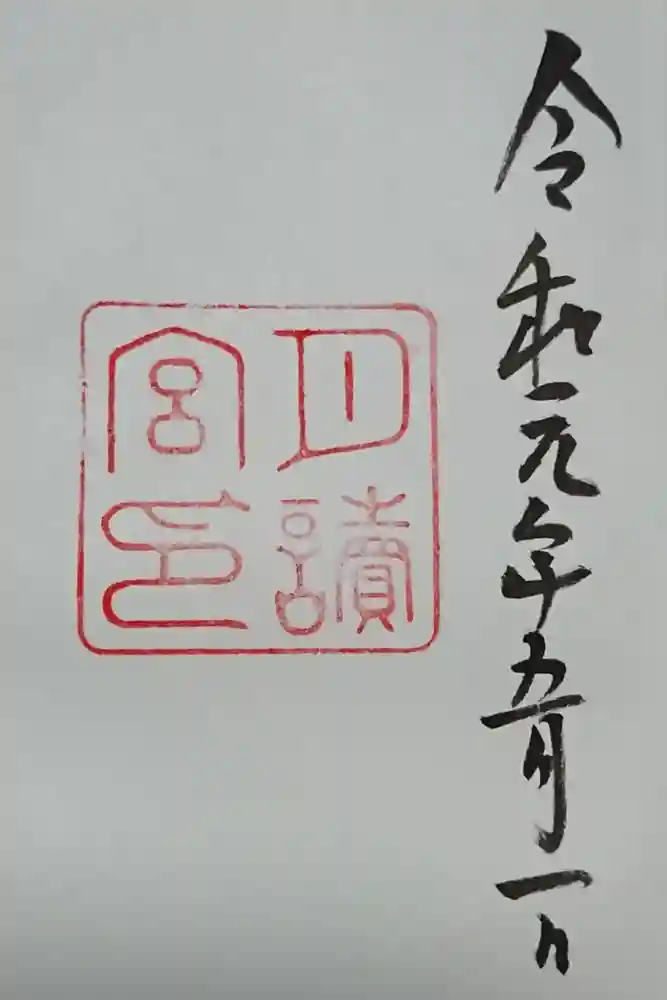 令和元年五月一日
月讀
宮印